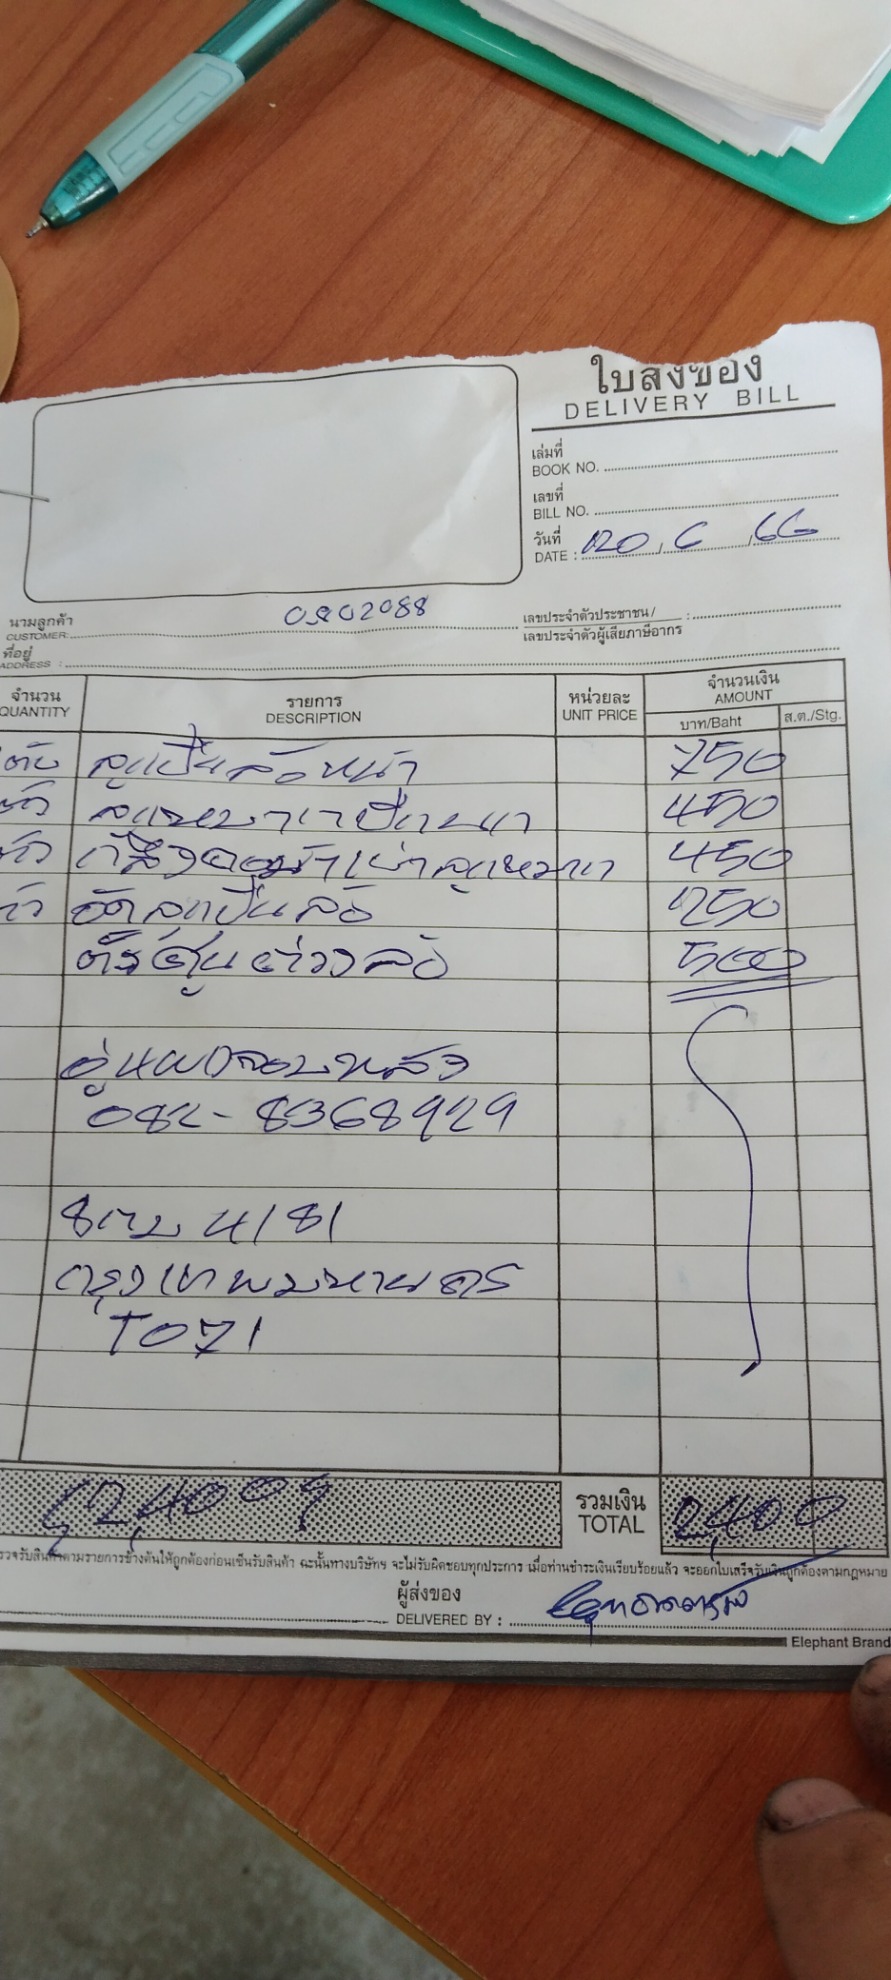 ใบส่งของ
DELIVERY BILL
เล่มที่
BOOK NO.
เลขที่
BILL NO.
วันที่
DATE : 20 / 6 / 66
นามลูกค้า
CUSTOMER: 0802088
เลขประจำตัวประชาชน / :
เลขประจำตัวผู้เสียภาษีอากร
ที่อยู่
ADDRESS :
จำนวน รายการ หน่วยละ จำนวนเงิน
QUANTITY DESCRIPTION UNIT PRICE AMOUNT
บาท/Baht ส.ต./Stg.
ลูกปืนล้อหน้า 750
ตัว ลูกหมากปีกนก 450
ตัว 450
ตัว อัดลูกปืนล้อ 250
ตั้งศูนย์ถ่วงล้อ 500
082-8368929
ฮกบ 4181
กรุงเทพมหานคร
T071
2,400 รวมเงิน 2,400
TOTAL
ตรวจรับสินค้าตามรายการข้างต้นให้ถูกต้องก่อนเซ็นรับสินค้า ฉะนั้นทางบริษัทฯ จะไม่รับผิดชอบทุกประการ เมื่อท่านชำระเงินเรียบร้อยแล้ว จะออกใบเสร็จรับเงินถูกต้องตามกฎหมาย
ผู้ส่งของ
DELIVERED BY :
Elephant Brand